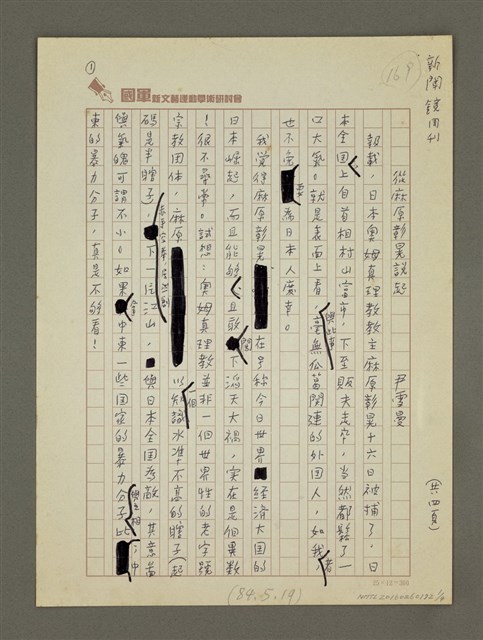 169
新聞鏡周刊
①
國軍新文藝運動學術研討會
從麻原彰晃說起
尹雪曼
(共四頁)
報載，日本奧姆真理教教主麻原彰晃十六日被捕了，日
本全国上自首相村山富市，下至販夫走卒，當然都鬆了一
口大氣。就是表面上看與此事毫無瓜葛関連的外国人，如我者
也不免要為日本人慶幸。
我覚得麻原彰晃在号称今日世界経済大国的
日本崛起，而且能够、且敢闖下滔天大禍，实在是個異数
！很不尋常。試想：奧姆真理教並非一個世界性的老字號
宗教団体，麻原以一個知識水準不高的瞎子(起
碼是半瞎子，下一片江山，與日本全国為敵，其意
傾氣魄可謂不小。如果拿中東一些国家的暴力分子與之相比，中
東的暴力分子，真是不够看！
25×12=300
(84.5.19)